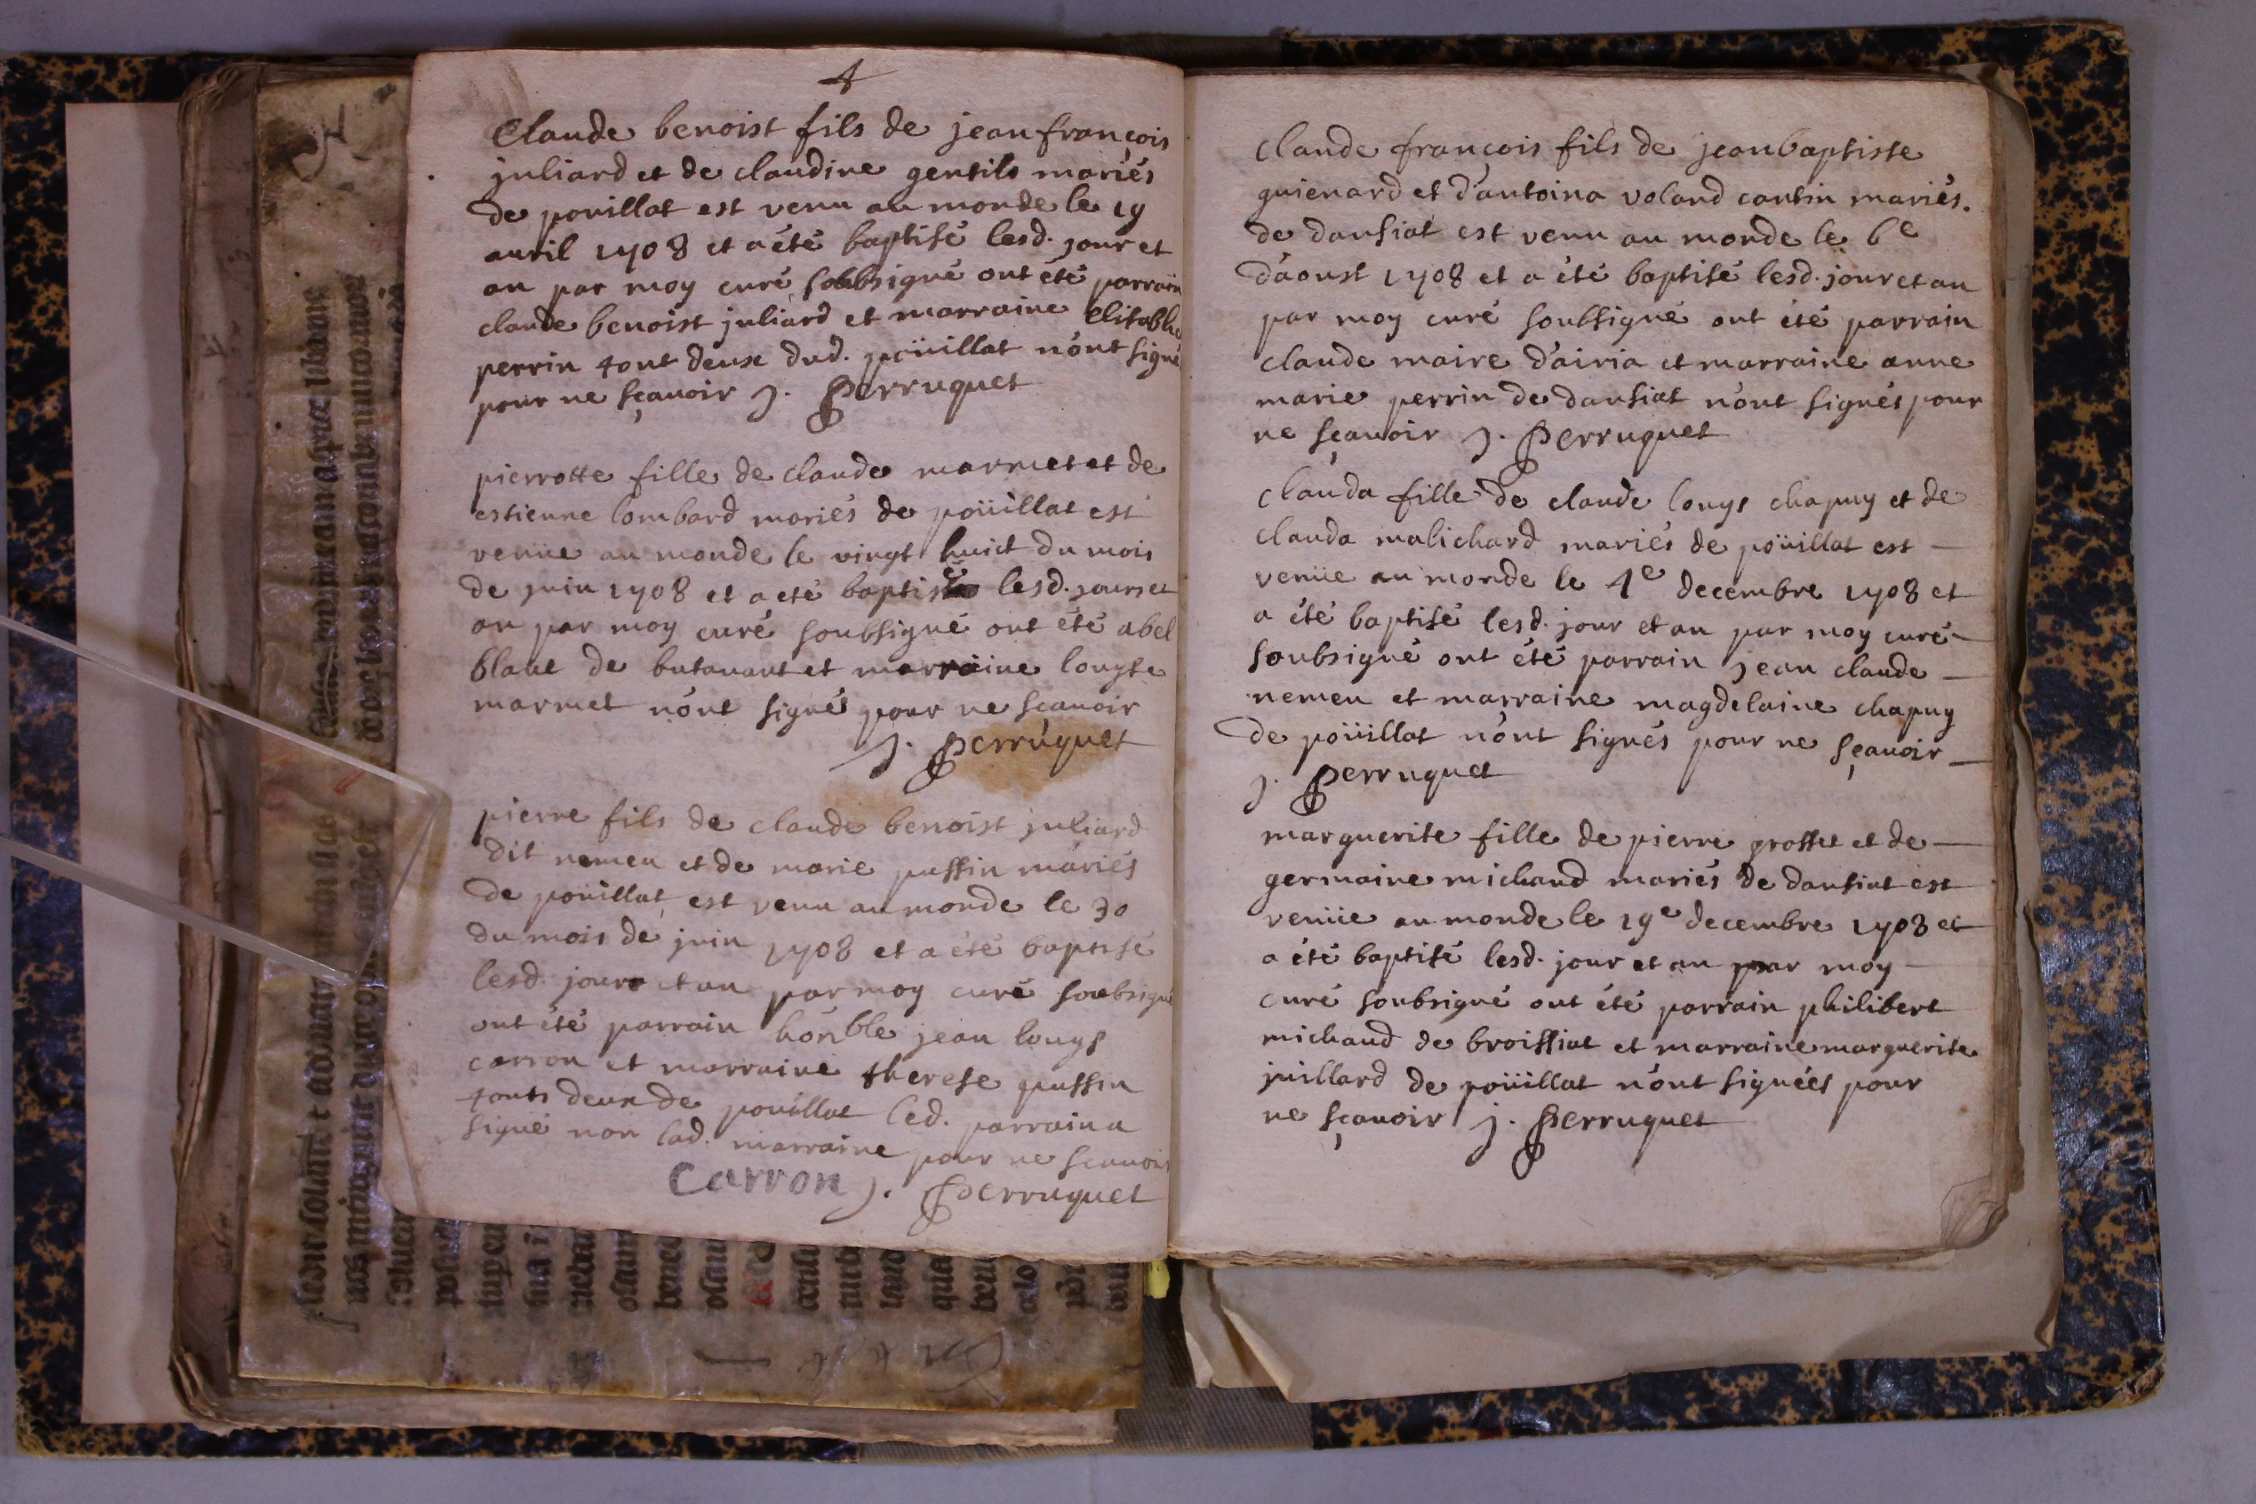 4
Claude benoist fils de jean françois
juliard et de claudine gentils mariés
de pouillat est venu au monde le 19
auril 1708 et a été baptisé lesd. jour et
an par moy curé soubsigné ont été parrain
claude benoist juliard et marraine Elisabhe
perrin tout deux dud. poüillat n'ont signé
pour ne sçauoir J. Perruquet
pierrotte fille de claude marmet et de
estienne lombard mariés de poüillat est
venüe au monde le vingt huict du mois
de juin 1708 et a eté baptisé lesd. jours et
an par moy curé soubsigné ont été abel
blanc de butauant et marraine louyse
marmet n'ont signés pour ne scauoir
J. Perruquet
pierre fils de claude benoist juliard
dit nemeu et de marie puffin mariés
de poüillat est venu au monde le 30
du mois de juin 1708 et a été baptisé
lesd. jour et an par moy curé soubsigné
ont été parrain honble jean louys
carron et marraine therese puffin
touts deux de pouillat led. parrain a
signé non lad. marraine pour ne scauoir
Carron J. Perruquet
Claude françois fils de jean baptiste
guienard et d'antoina voland cantin mariés.
de dansiat est venu au monde le 6e
d'aoust 1708 et a été baptisé lesd. jour et an
par moy curé soussigné ont été parrain
claude maire d'airia et marraine anne
marie perrin de dansiat n'ont signés pour
ne sçauoir J. Perruquet
Clauda fille de claude louys chapuy et de
clauda malichard mariés de poüillat est
venüe au monde le 4e decembre 1708 et
a été baptisé lesd. jour et an par moy curé
soubsigné ont été parrain Jean claude
nemeu et marraine magdelaine chapuy
de poüillat n'ont signés pour ne sçauoir
J. Perruquet
marguerite fille de pierre grosset et de
germaine michaud mariés de dansiat est
venüe au monde le 19e decembre 1708 et
a été baptisé lesd. jour et an par moy
curé soubsigné ont été parrain philibert
michaud de broissiat et marraine marguerite
juillard de poüillat n'ont signées pour
ne sçauoir J. Perruquet